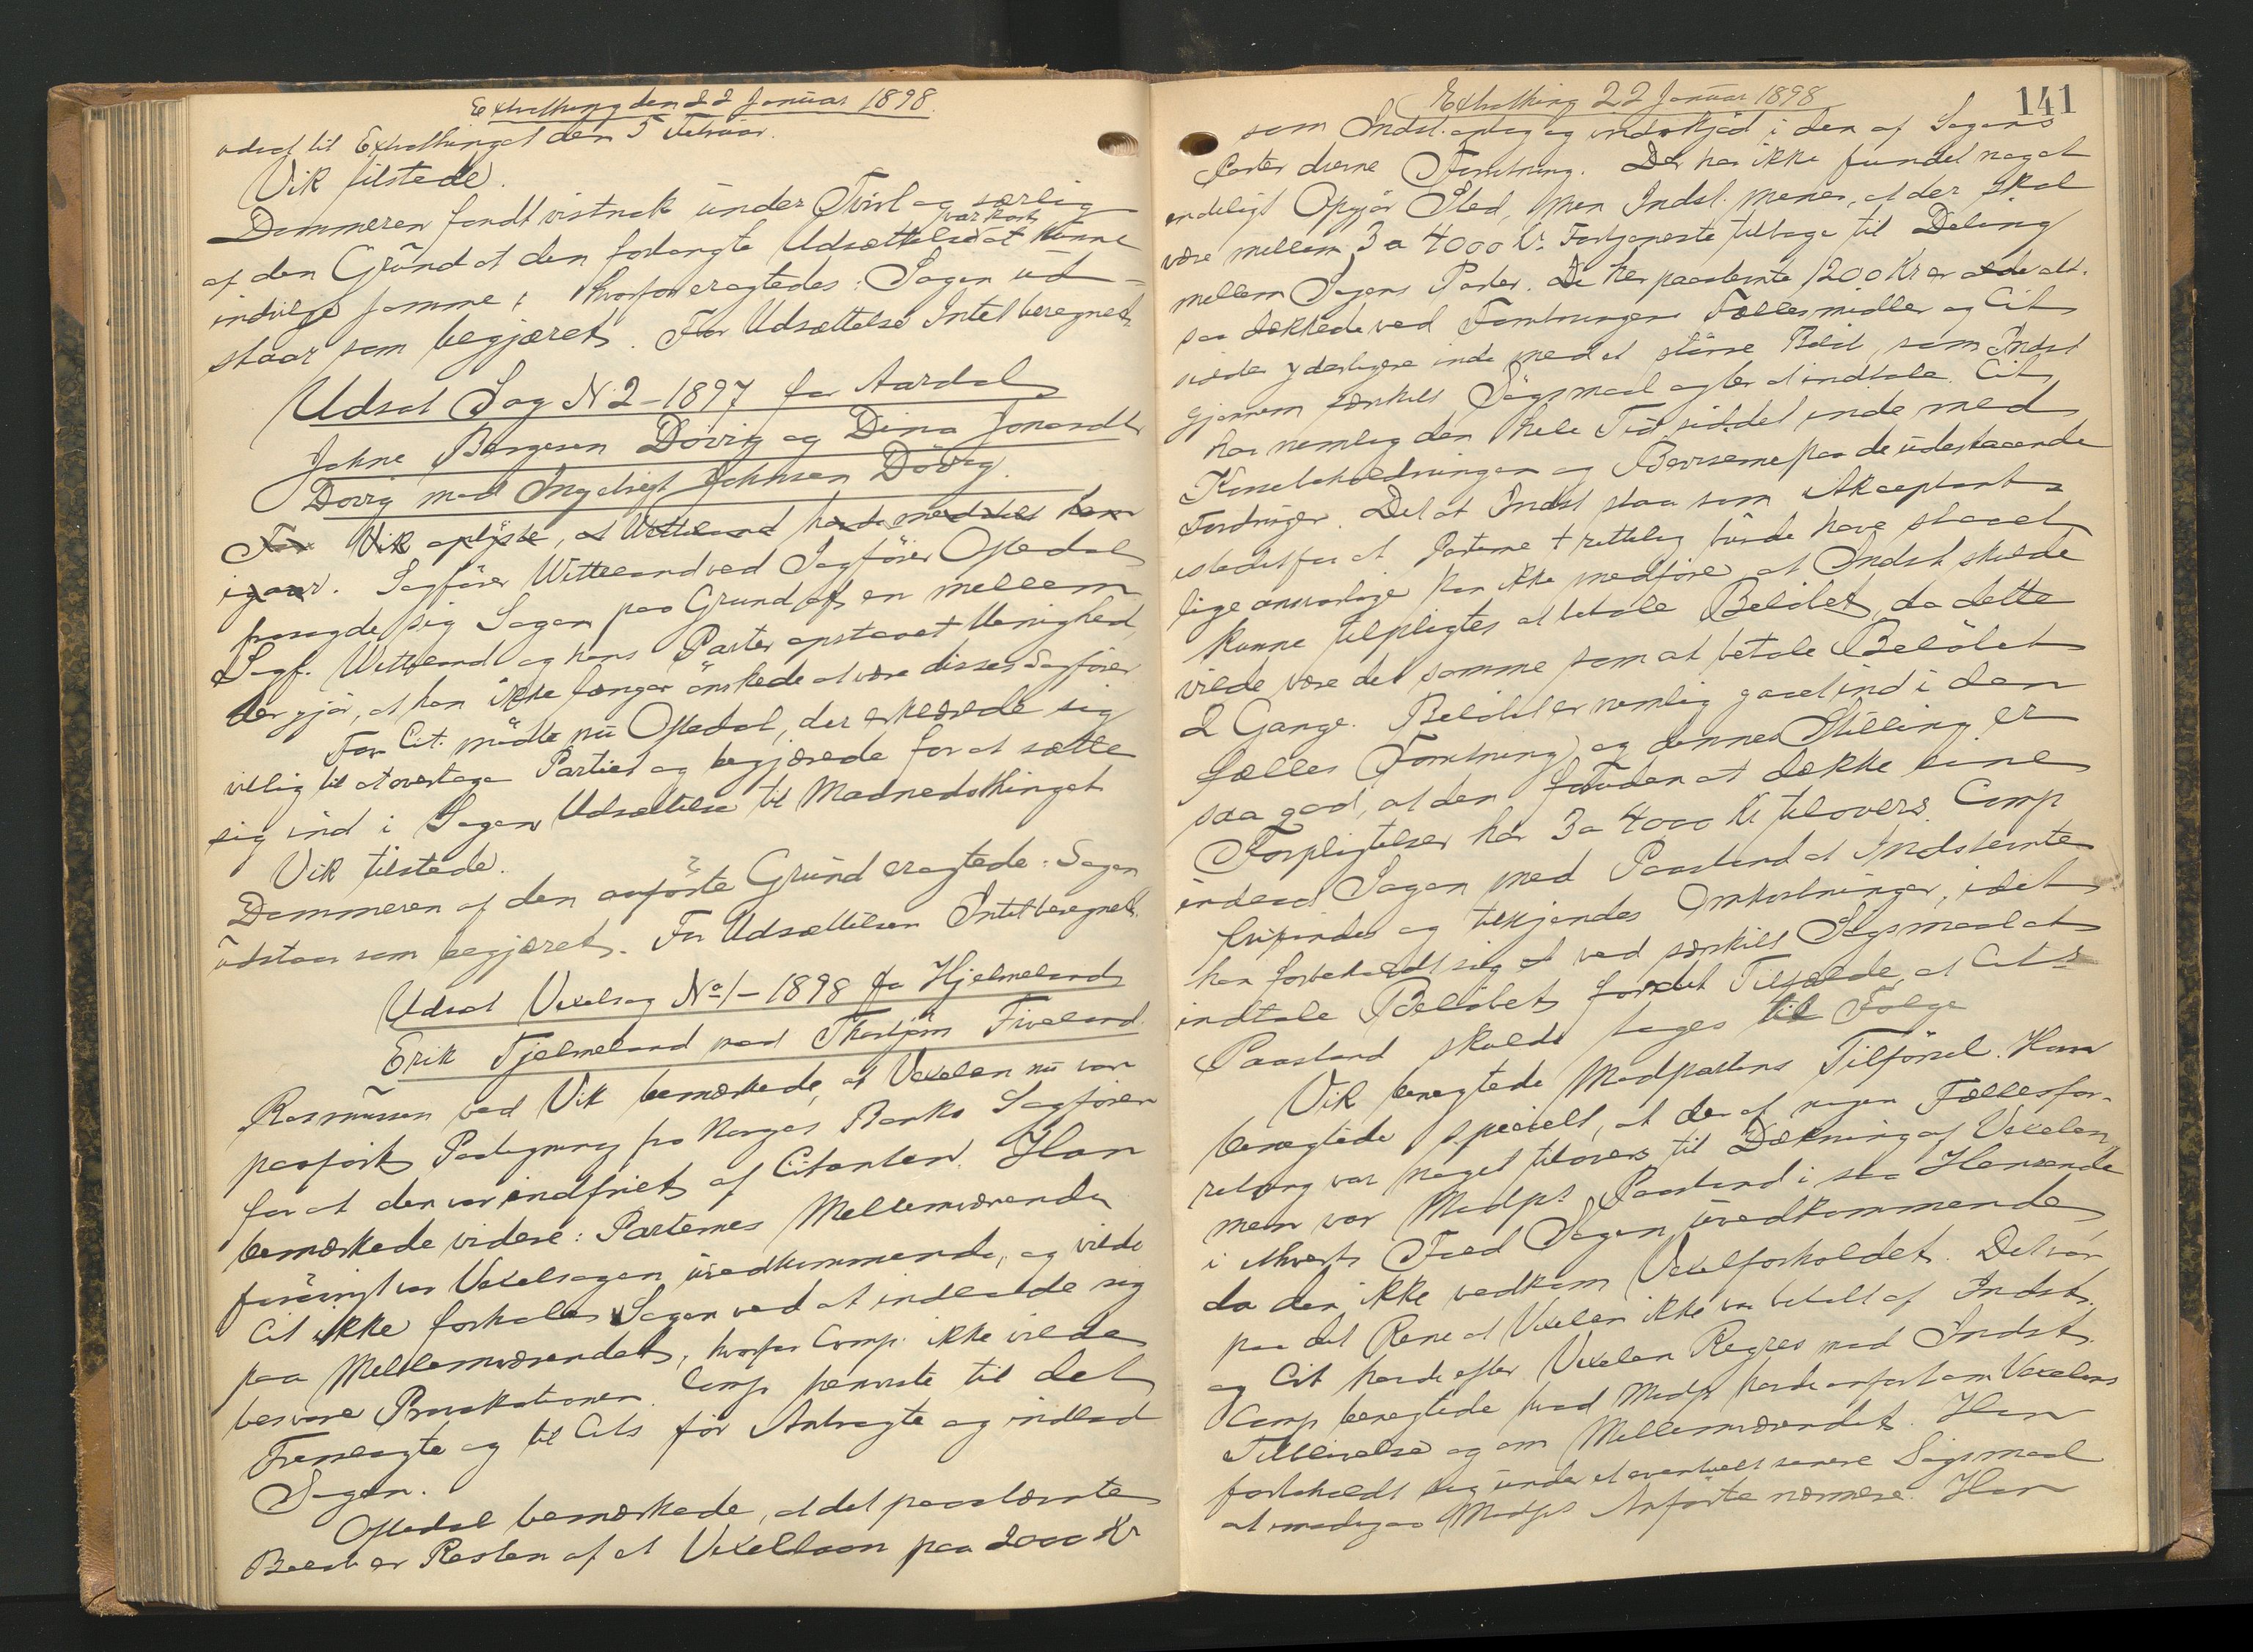 Extrathing den 22 Januar 1898.
udsat til Extrathinget den 5 Februar.
Vik tilstede.
Dommeren fandt vistnok under Tvivl og særlig
af den Grund at den forlangte Udsættelse var kort at kunne
indvilge samme, hvorfor eragtedes: Sagen ud-
staar som begjæret. For Udsættelse Intet beregnet.
Udsat Sag N 2-1897 fra Aardal
Johne Børgesen Døvig og Dina Jonasdtr
Døvig mod Ingebrigt Johnsen Døvig.
For Vik oplyste, at Witteland havde meddelt ham
igaar. Sagfører Witteland ved Sagfører Oftedal
frasagde sig Sagen paa Grund af en mellem
Sagf. Witteland og hans Parter opstaaet Uenighed,
der gjør, at han ikke længer ønskede at være disses Sagfører
For Cit. mødte nu Oftedal, der erklærede sig
villig til at overtage Partiet og begjærede for at sætte
sig ind i Sagen Udsættelse til Maanedsthinget
Vik tilstede.
Dommeren af den anførte Grund eragtede: Sagen
udstaar som begjæret. For Udsættelsen Intet beregnet.
Udsat Vexelsag No 1-1898 fra Hjelmeland
Erik Tjelmeland mod Thorbjørn Fiveland.
Rasmussen ved Vik bemærkede, at Vexelen nu var
paaført Paategning fra Norges Banks Sagfører
for at den var indfriet af Citanten. Han
bemærkede videre: Parternes Mellemværende
forøvrigt var Vexelsagen uvedkommende, og vilde
Cit ikke forhale Sagen ved at indlade sig
paa Mellemværendet, hvorfor Comp. ikke vilde
besvare Provokationen. Comp henviste til det
Fremlagte og til Cits før Anbragte og indlod
Sagen.
Oftedal bemærkede, at det paastævnte
Beløb er Resten af et Vexellaan paa 2000 Kr
Extrathing 22 Januar 1898
141
som Indst. optog og indskjød i den af Sagens
Parter drevne Forretning. Der har ikke fundet noget
endeligt Opgjør Sted, men Indst. mener, at der skal
være mellem 3 a 4000 Kr. Fortjeneste tilbage til Deling
mellem Sagens Parter. De her paastevnte 1200 Kr er alt-
saa dækkede ved Forretningens Fællesmidler og Cit
sidder yderligere inde med et større Beløb, som Indst
gjennem særskilt Søgsmaal agter at indtale. Cit
har nemlig den hele Tid siddet inde med
Kassebeholdningen og Beviserne paa de udestaaende
Fordringer. Det at Indst staar som Akceptant
istedetfor at Parterne rettelig burde have staaet
lige ansvarlige kan ikke medføre, at Indst skulde
kunne tilpligtes at betale Beløbet, da dette
vilde være det samme som at betale Beløbet
2 Gange. Beløbet er nemlig gaaet ind i den
fælles Forretning, og dennes Stilling er
saa god, at den foruden at dække sine
Forpligtelser har 3 a 4000 Kr tilovers. Comp
indlod Sagen med Paastand at Indstevnte
frifindes og tilkjendes Omkostninger, idet
han forbeholdt sig at ved særskilt Søgsmaal at
indtale Beløbet for det Tilfælde, at Cits
Paastand skulde tages til Følge
Vik benegtede Modpartens Tilførsel. Han
benegtede specielt, at der af nogen Fællesfor-
retning var noget tilovers til Dækning af Vexelen,
men var Modps Paastand i saa Henseende
i ethvert Fald Sagen uvedkommende
da den ikke vedkom Vexelforholdet. Det var
paa det Rene at Vexelen ikke var betalt af Indst.
og Cit havde efter Vexelen Regres mod Indst.
Comp benegtede hvad Modp havde anført om Vexelens
Tilblivelse og om Mellemværendet. Han
forbeholdt sig under et eventuelt senere Søgsmaal
at imødegaa Modps Anførte nærmere. Han